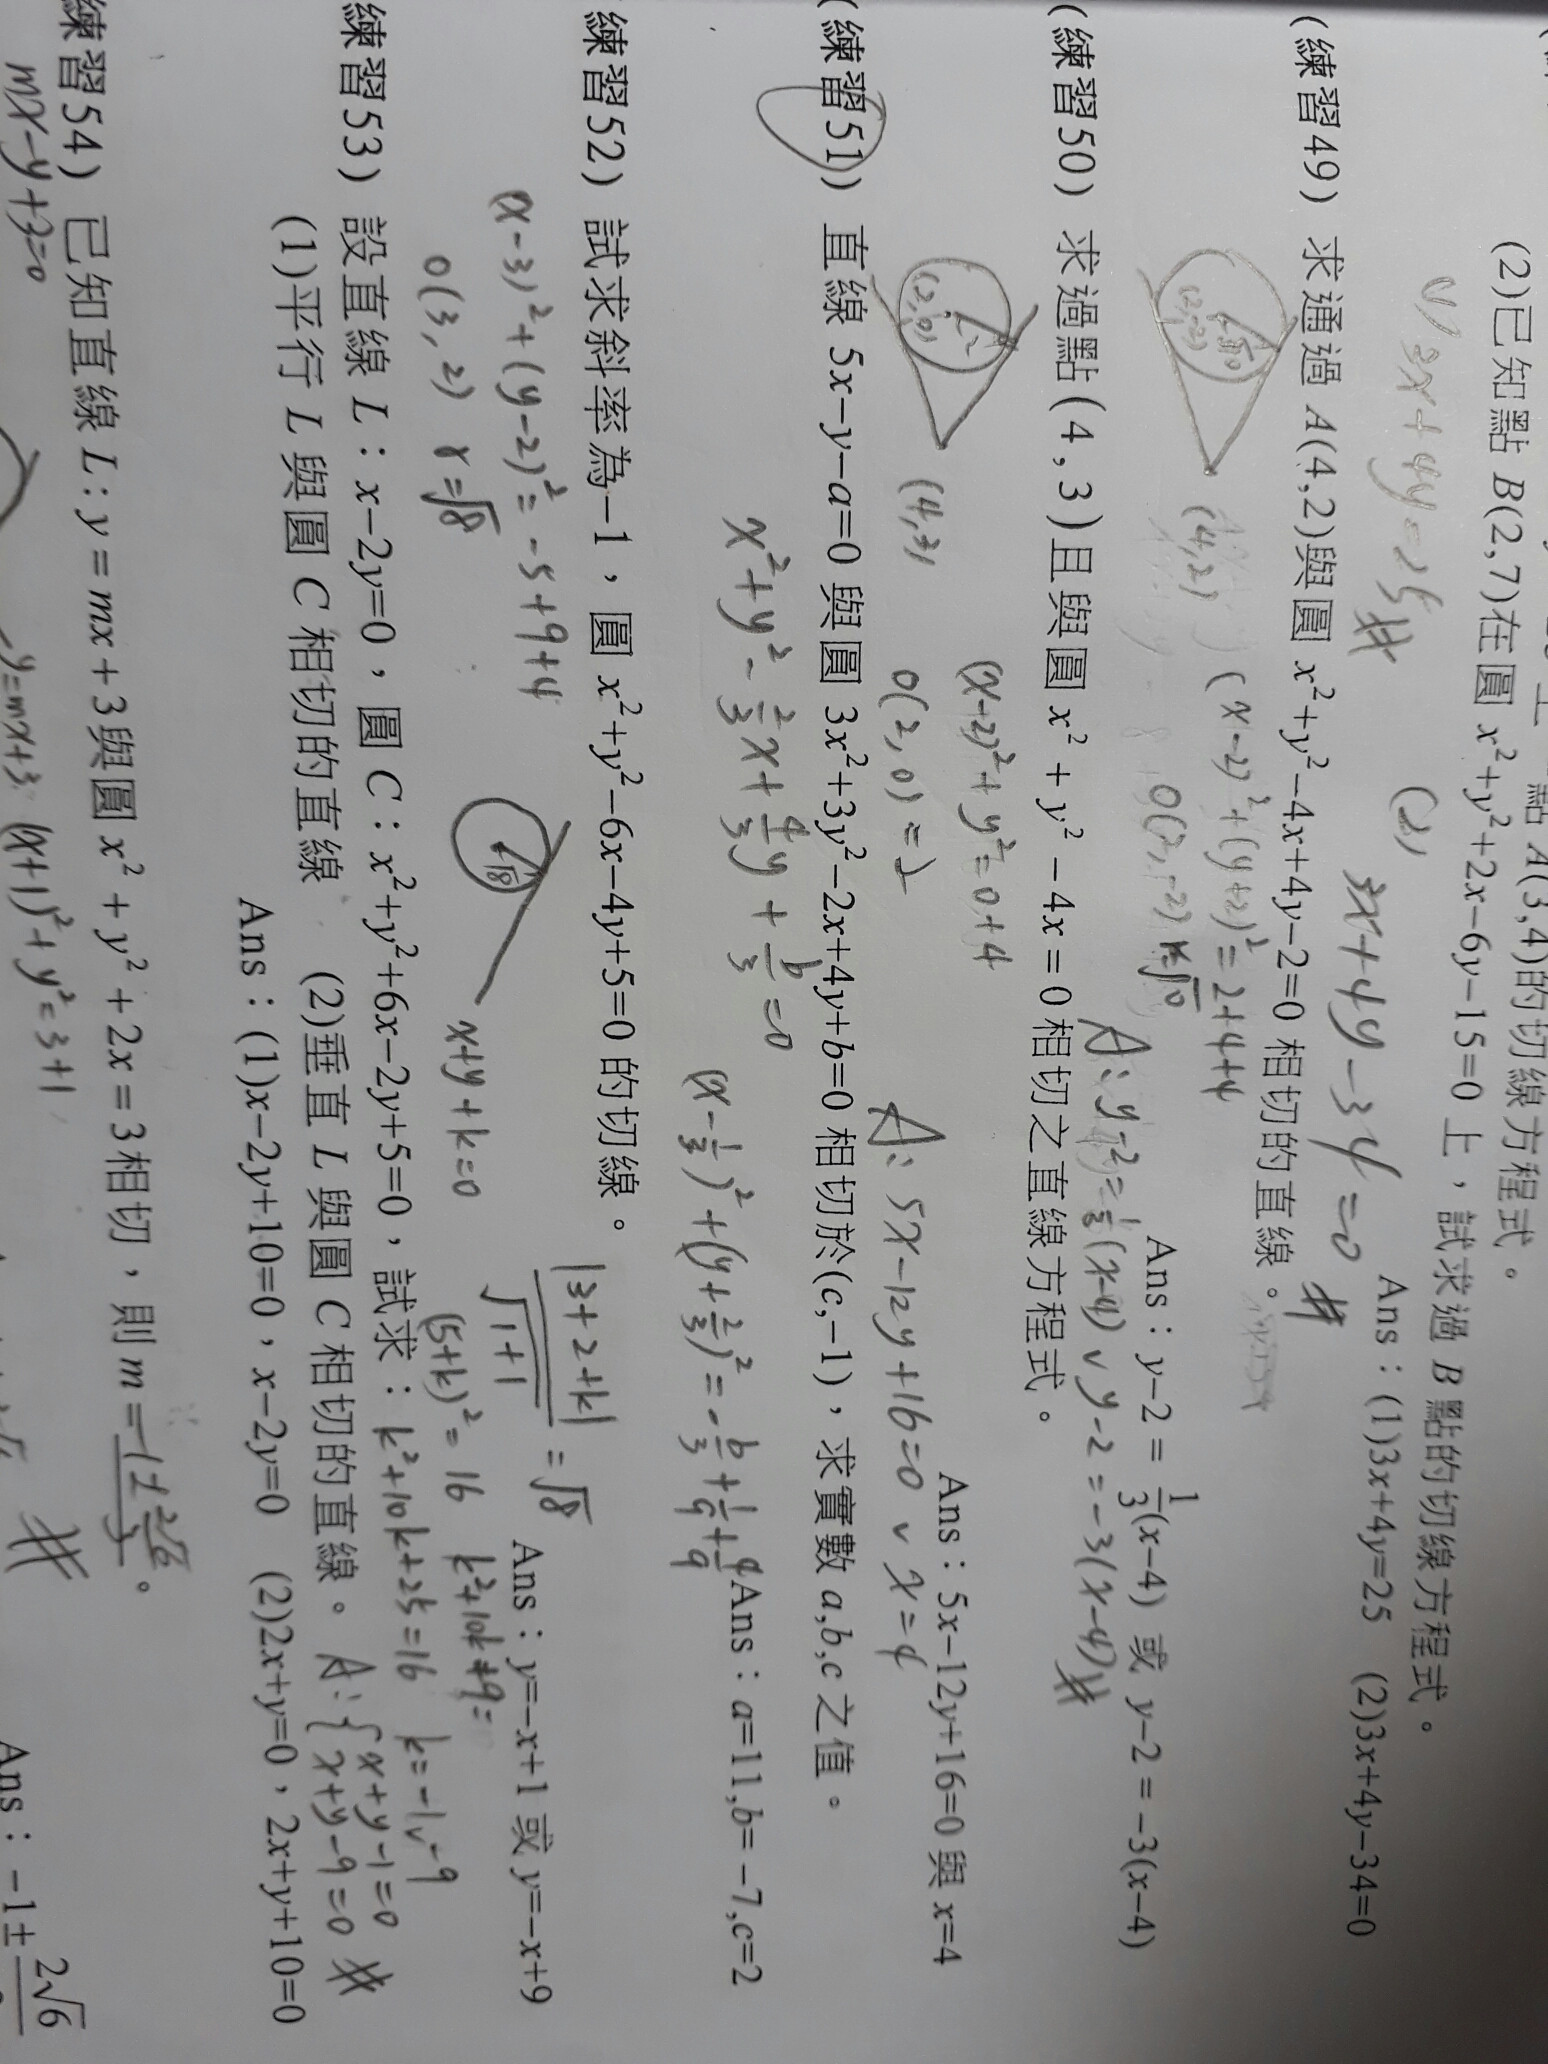 點 A(3,4)的切線方程式。
(2)已知點 B(2,7)在圓 x²+y²+2x−6y−15=0 上，試求過 B 點的切線方程式。
Ans：(1)3x+4y=25 (2)3x+4y−34=0
(1) 3x+4y=25
(2) 3x+4y−34=0
(練習49) 求通過 A(4,2)與圓 x²+y²−4x+4y−2=0 相切的直線。
Ans：y−2=1/3(x−4) 或 y−2=−3(x−4)
(2,-2) √10
(4,2)
(x−2)²+(y+2)²=2+4+4
O(2,−2) r=√10
A: y−2=1/3(x−4) ∨ y−2=−3(x−4)
(練習50) 求過點(4,3)且與圓 x²+y²−4x=0 相切之直線方程式。
Ans：5x−12y+16=0 與 x=4
(2,0) 2
(4,3)
(x+2)²+y²=0+4
O(2,0) =2
A: 5x−12y+16=0 ∨ x=4
(練習51) 直線 5x−y−a=0 與圓 3x²+3y²−2x+4y+b=0 相切於(c,−1)，求實數 a,b,c 之值。
x²+y²−2/3x+4/3y+b/3=0
(x−1/3)²+(y+2/3)²=−b/3+1/9+4/9
Ans：a=11,b=−7,c=2
練習52) 試求斜率為−1，圓 x²+y²−6x−4y+5=0 的切線。
(x−3)²+(y−2)²=−5+9+4
O(3,2) r=√8
√8
x+y+k=0
|3+2+k|/√1+1=√8
(5+k)²=16
k²+10k+9=
k²+10k+25=16
k=−1∨−9
Ans：y=−x+1 或 y=−x+9
A:{x+y−1=0
x+y−9=0
練習53) 設直線 L：x−2y=0，圓 C：x²+y²+6x−2y+5=0，試求：
(1)平行 L 與圓 C 相切的直線 (2)垂直 L 與圓 C 相切的直線。
Ans：(1)x−2y+10=0，x−2y=0 (2)2x+y=0，2x+y+10=0
練習54) 已知直線 L:y=mx+3與圓 x²+y²+2x=3相切，則 m=
mx−y+3=0
y=mx+3
(x+1)²+y²=3+1
Ans：−1±2√6